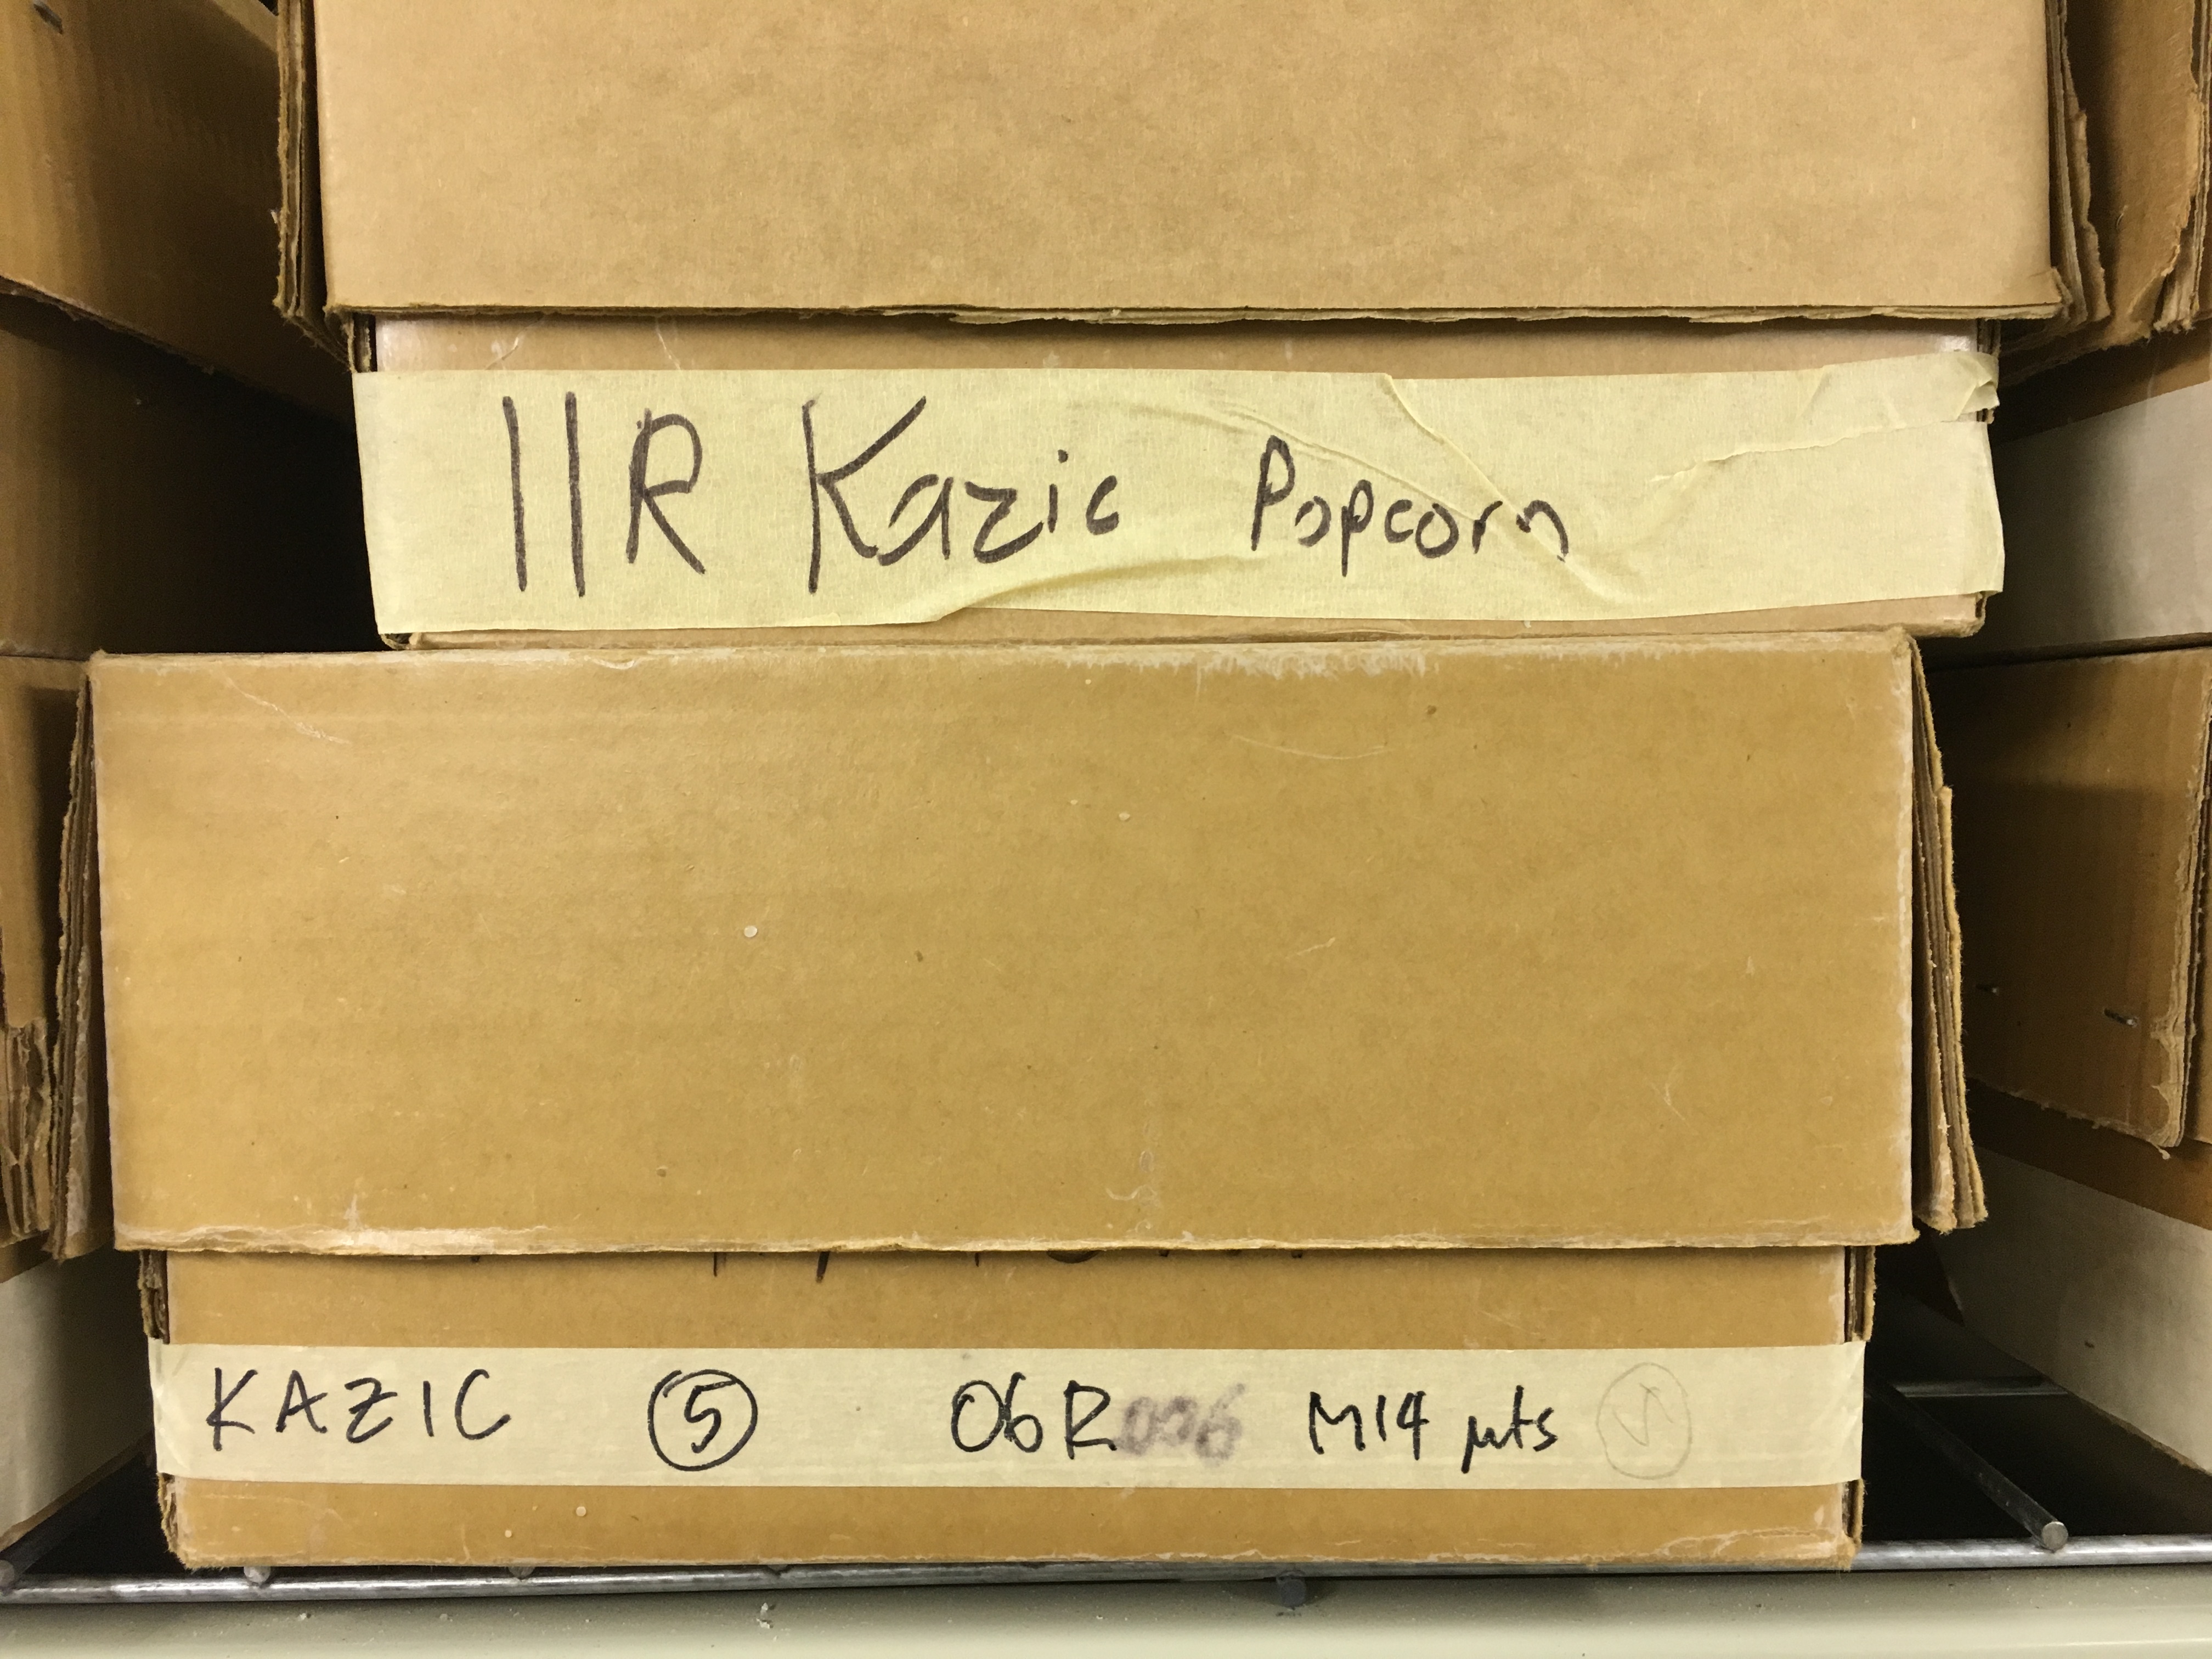 11R Kazic Popcorn
KAZIC 5 06R 006 M14 μts